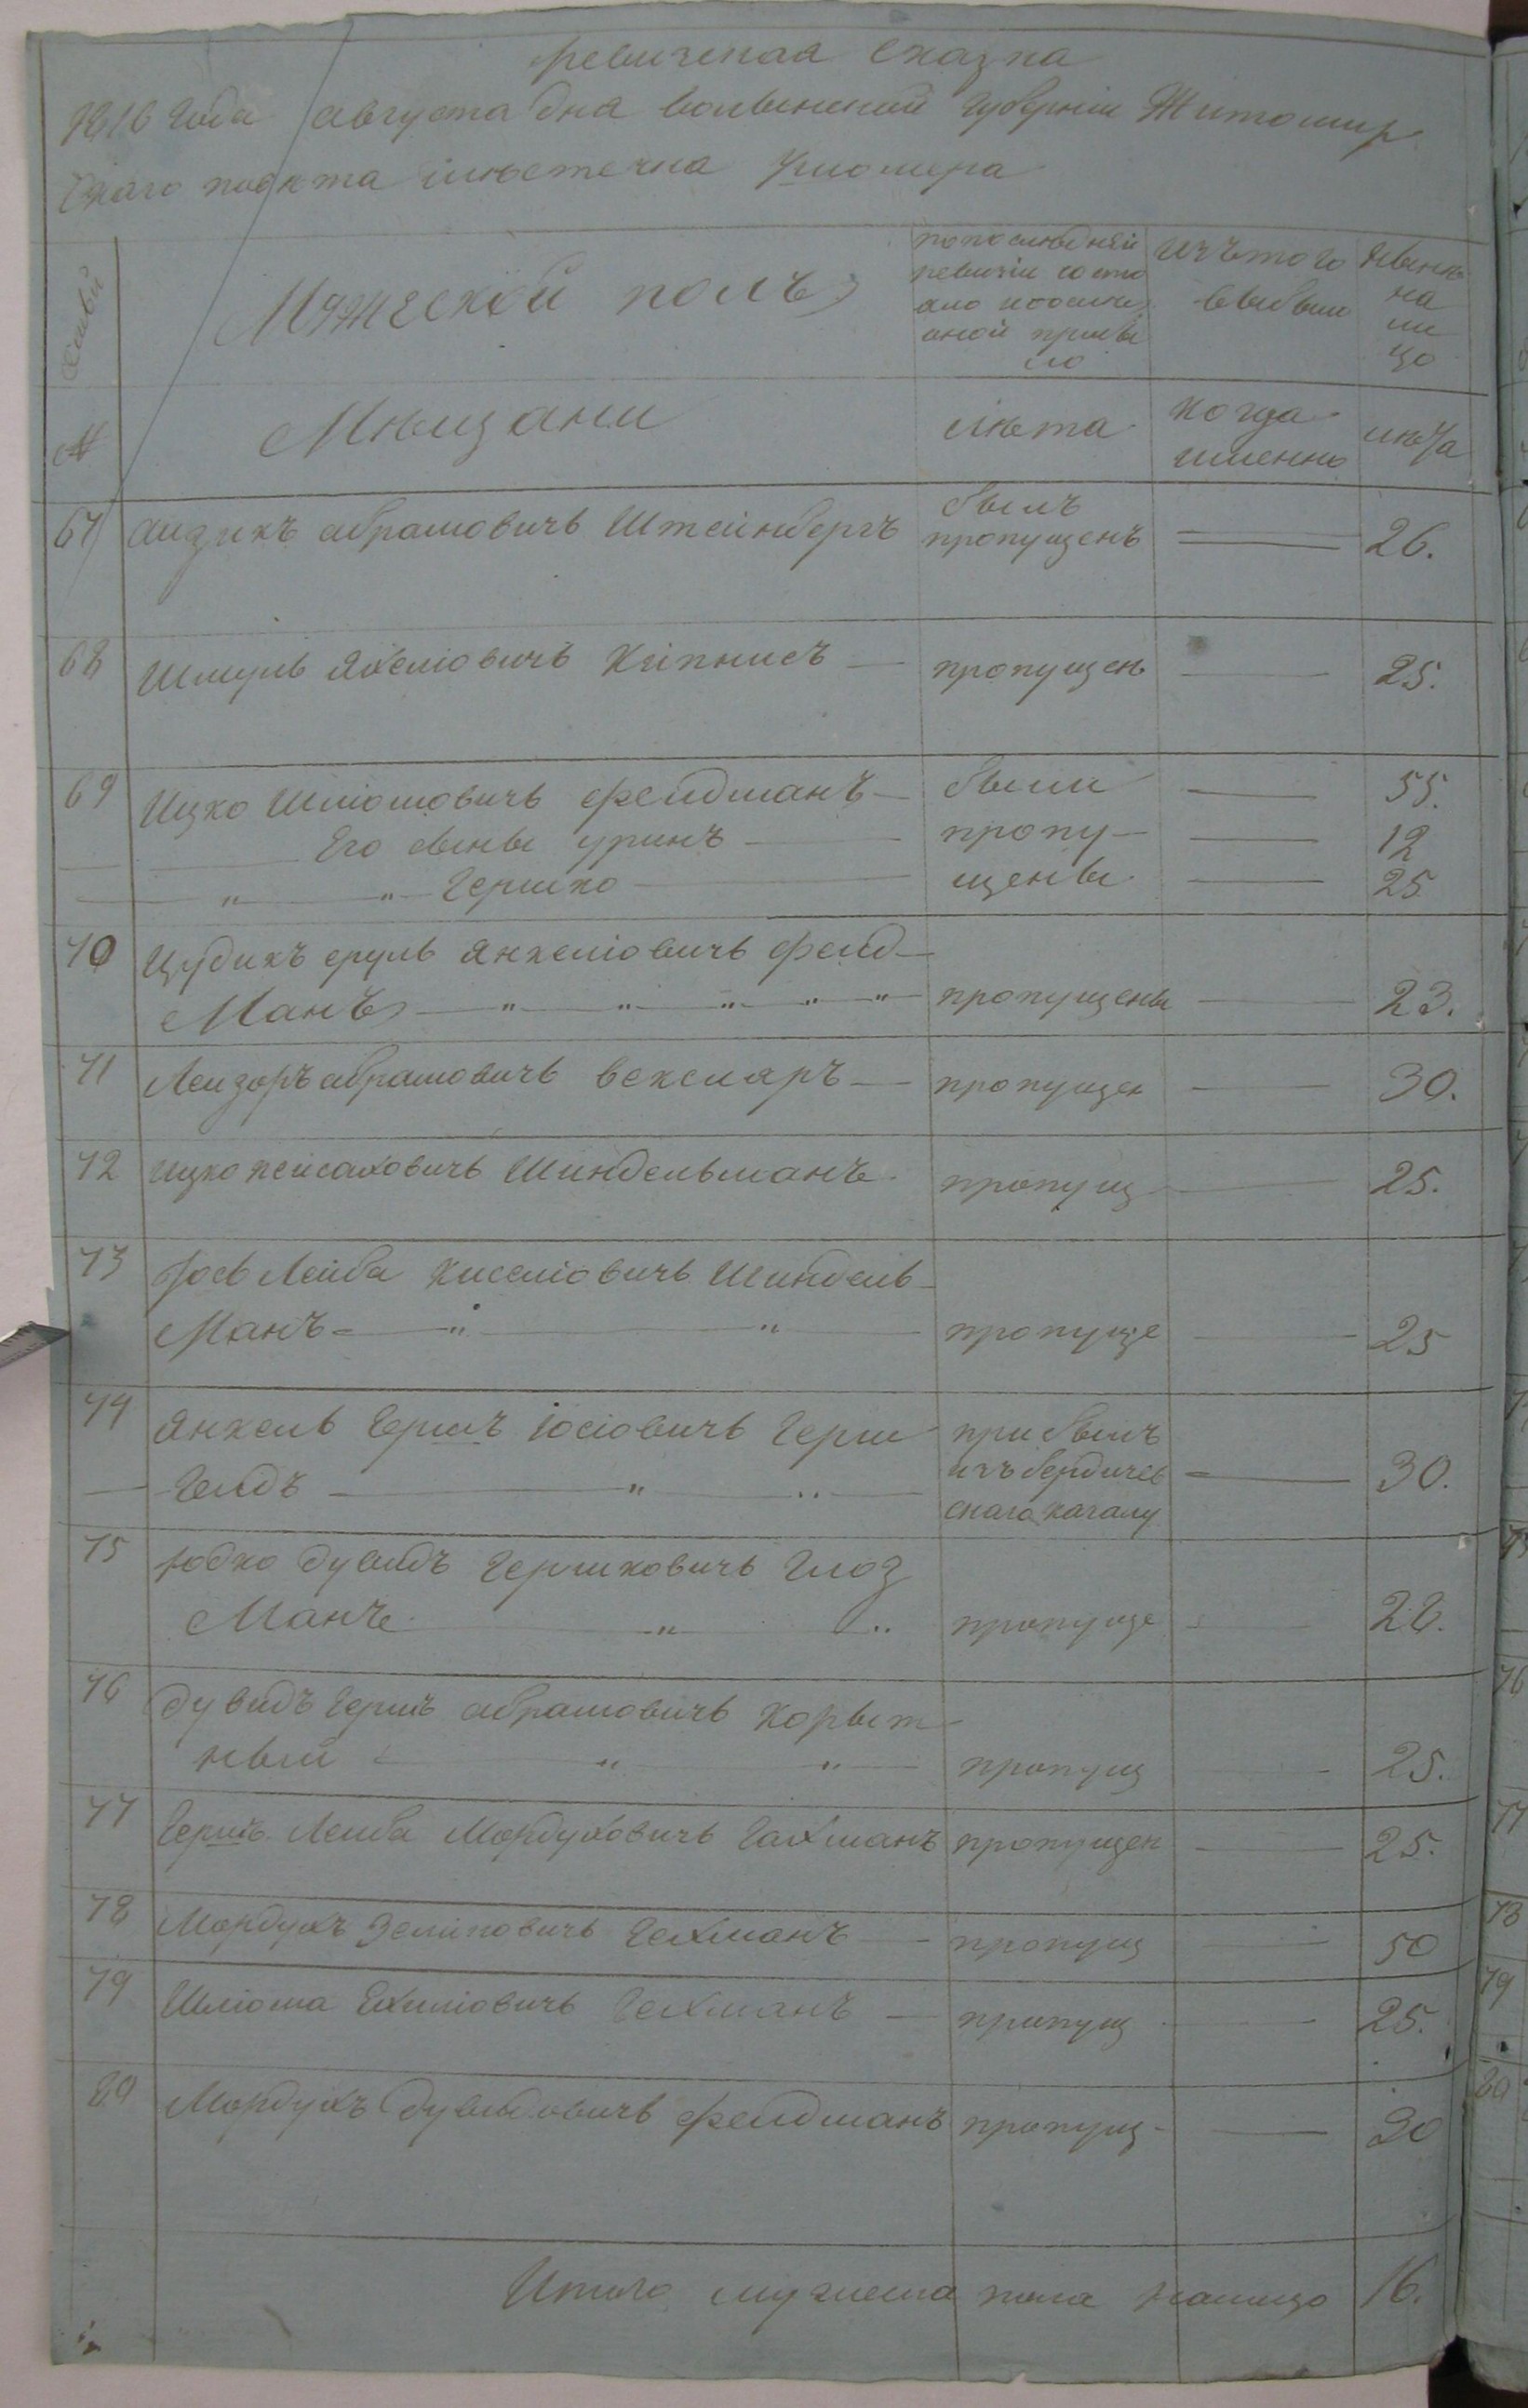 ревизская сказка
1816 года августа дня волынской губернии Житомир
скаго повѣта мѣстечка
семьи
Мужеской полъ
по последней
ревизіи состо
яло и после
оной прибы
ло
изъ того
выбыло
нынѣ
на
ли
цо
№
Мѣщани
лѣта
когда
именно
лѣта
67 аизикъ абрамовичь Штейнбергъ
былъ
пропущенъ
26.
68 Шмуль Яхеліовичъ Кіпнисъ — пропущенъ — 25.
69 Ицко Шліомовичь фейдманъ — были — 55.
Его сыны уринъ — пропу — 12
" " Гершко — щены — 25
70 Цудикъ сруль янкеліовичь фейд—
Манъ — " " " " " пропущены — 23.
71 Лейзоръ абрамовичь векслярь — пропущен — 30.
72 ицко пейсаховичь Шиндельманъ пропущ — 25.
73 Іось Лейба киселіовичь Шиндель—
Манъ — " — " — пропуще — 25
74 янкель Гершъ іосіовичь Герш
Гейдъ — " — "
прибылъ
изъ бердичев
скаго кагалу
— 30.
75 юдко дувидъ Гершковичь Глоз
Манъ " " пропуще — 28.
76 дувидъ Гершъ абрамовичь Корыт—
ный — " — " — пропущ — 25.
77 Гершъ Лейба Мордуховичь Гахманъ пропущен — 25.
78 Мордухъ Зеліковичь Гехманъ — пропущ — 50
79 Шліома Ехиліовичь Гехманъ — пропущ — 25.
80 Мордухъ дувидовичь фейдманъ пропущ — 30
Итого мужеска пола налицо 16.
75
76
77
78
79
80